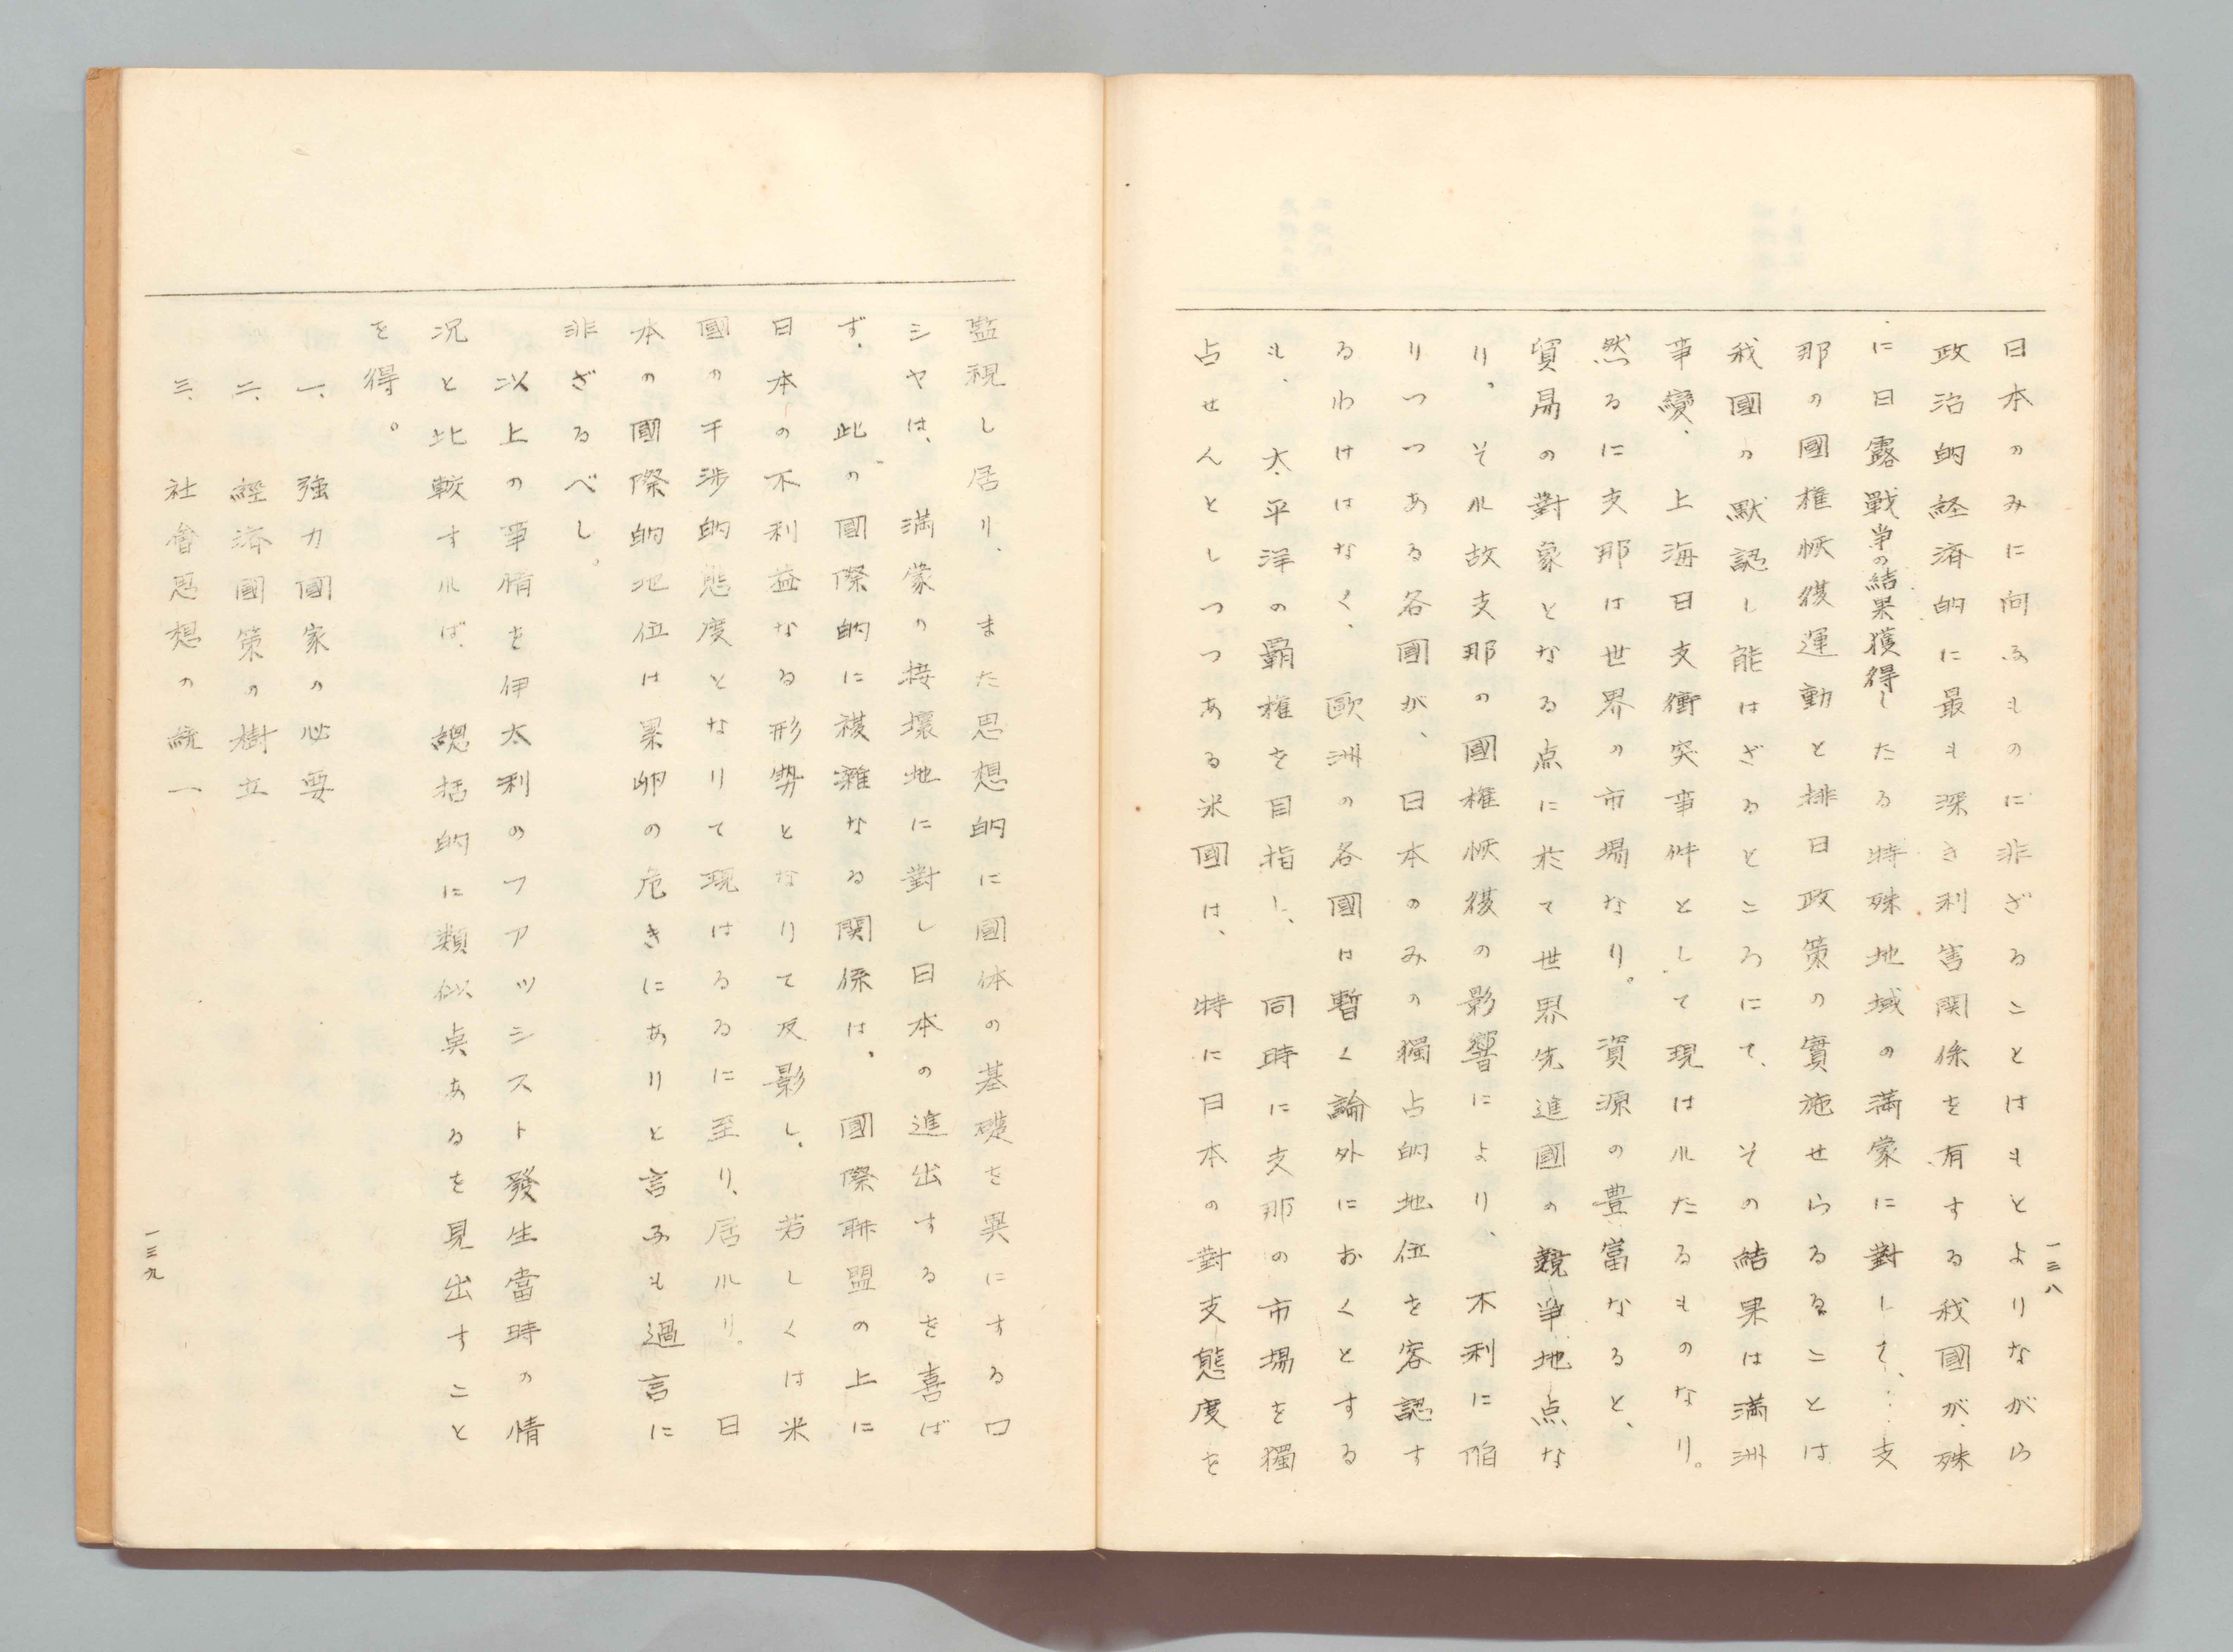 日本のみに向ふものに非ざることはもとよりながら
政治的経済的に最も深き利害関係を有する我國が、殊
に日露戰爭の結果獲得したる特殊地域の満蒙に對して、支
那の國権恢復運動と排日政策の實施せらるることは
我國の默認し能はざるところにて、その結果は満洲
事變、上海日支衝突事件として現はれたるものなり。
然るに支那は世界の市場なり。資源の豊富なると、
貿易の對象となる点に於て世界先進國の競爭地点な
り。それ故支那の國権恢復の影響により、不利に陷
りつつある各國が、日本のみの獨占的地位を容認す
るわけはなく、歐洲の各國は暫く論外におくとする
も、太平洋の覇権を目指し、同時に支那の市場を獨
占せんとしつつある米國は、特に日本の對支態度を
一三八
監視し居り、また思想的に國体の基礎を異にするロ
シヤは、満蒙の接壤地に對し日本の進出するを喜ば
ず、此の國際的に複雜なる関係は、國際聯盟の上に
日本の不利益なる形勢となりて反影し、若しくは米
國の干渉的態度となりて現はるるに至り、居れり。日
本の國際的地位は累卵の危きにありと言ふも過言に
非ざるべし。
以上の事情を伊太利のファッシスト發生當時の情
況と比較すれば、總括的に類似点あるを見出すこと
を得。
一、強力國家の必要
二、經済國策の樹立
三、社會思想の統一
一三九